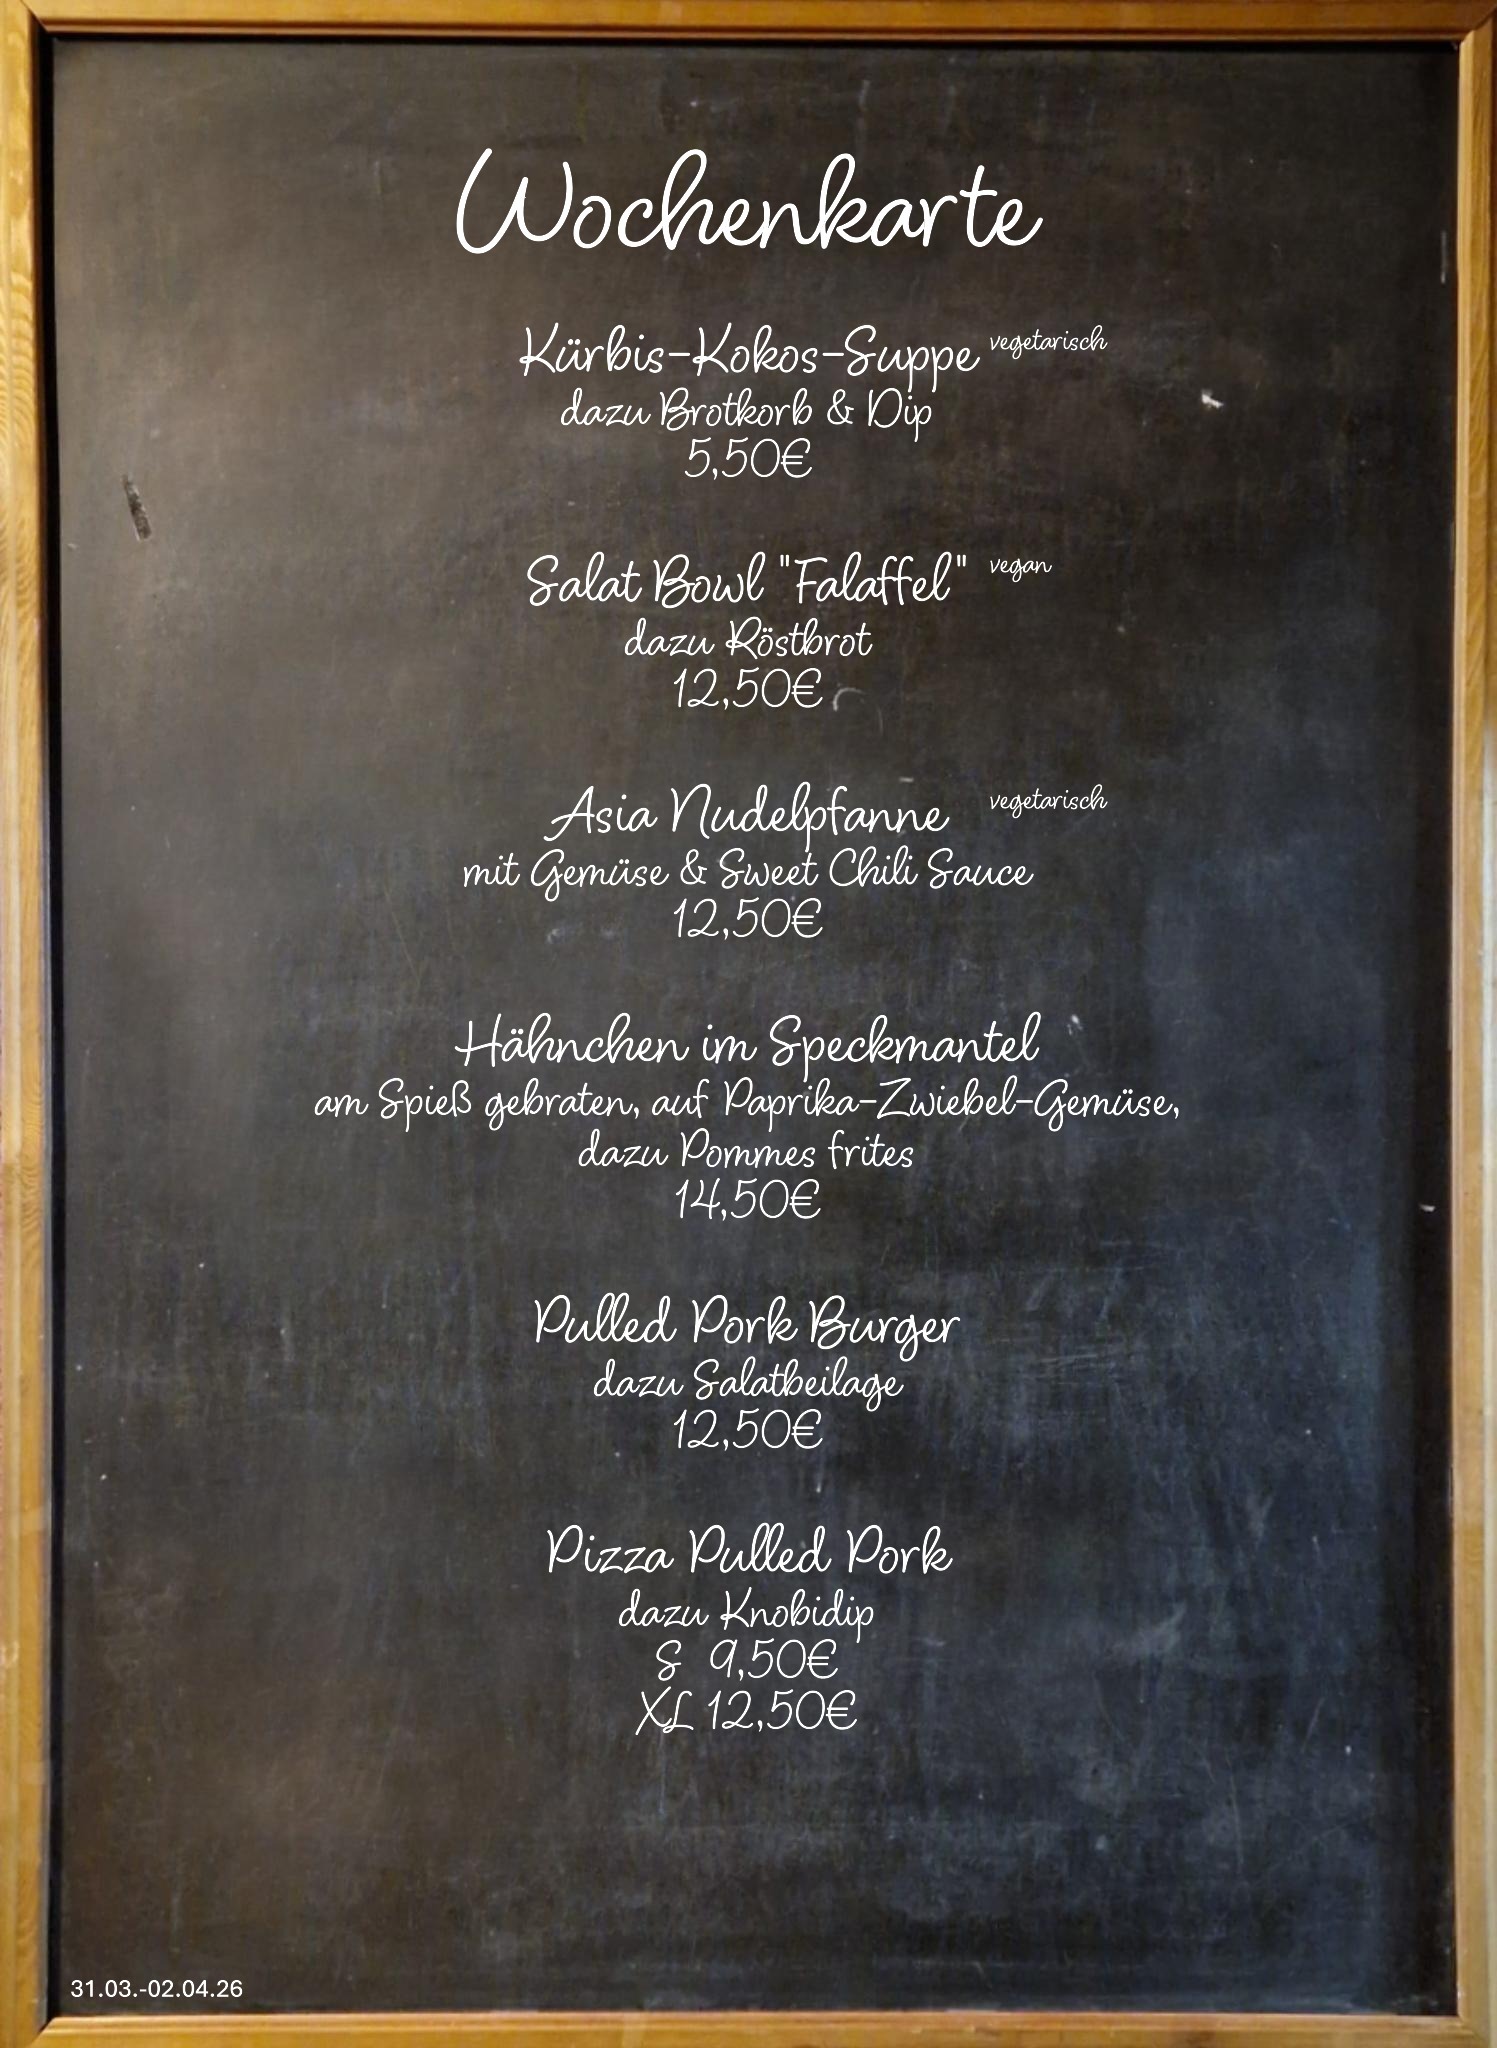 Wochenkarte
Kürbis-Kokos-Suppe vegetarisch
dazu Brotkorb & Dip
5,50€
Salat Bowl "Falaffel" vegan
dazu Röstbrot
12,50€
Asia Nudelpfanne vegetarisch
mit Gemüse & Sweet Chili Sauce
12,50€
Hähnchen im Speckmantel
am Spieß gebraten, auf Paprika-Zwiebel-Gemüse,
dazu Pommes frites
14,50€
Pulled Pork Burger
dazu Salatbeilage
12,50€
Pizza Pulled Pork
dazu Knobidip
S 9,50€
XL 12,50€
31.03.-02.04.26